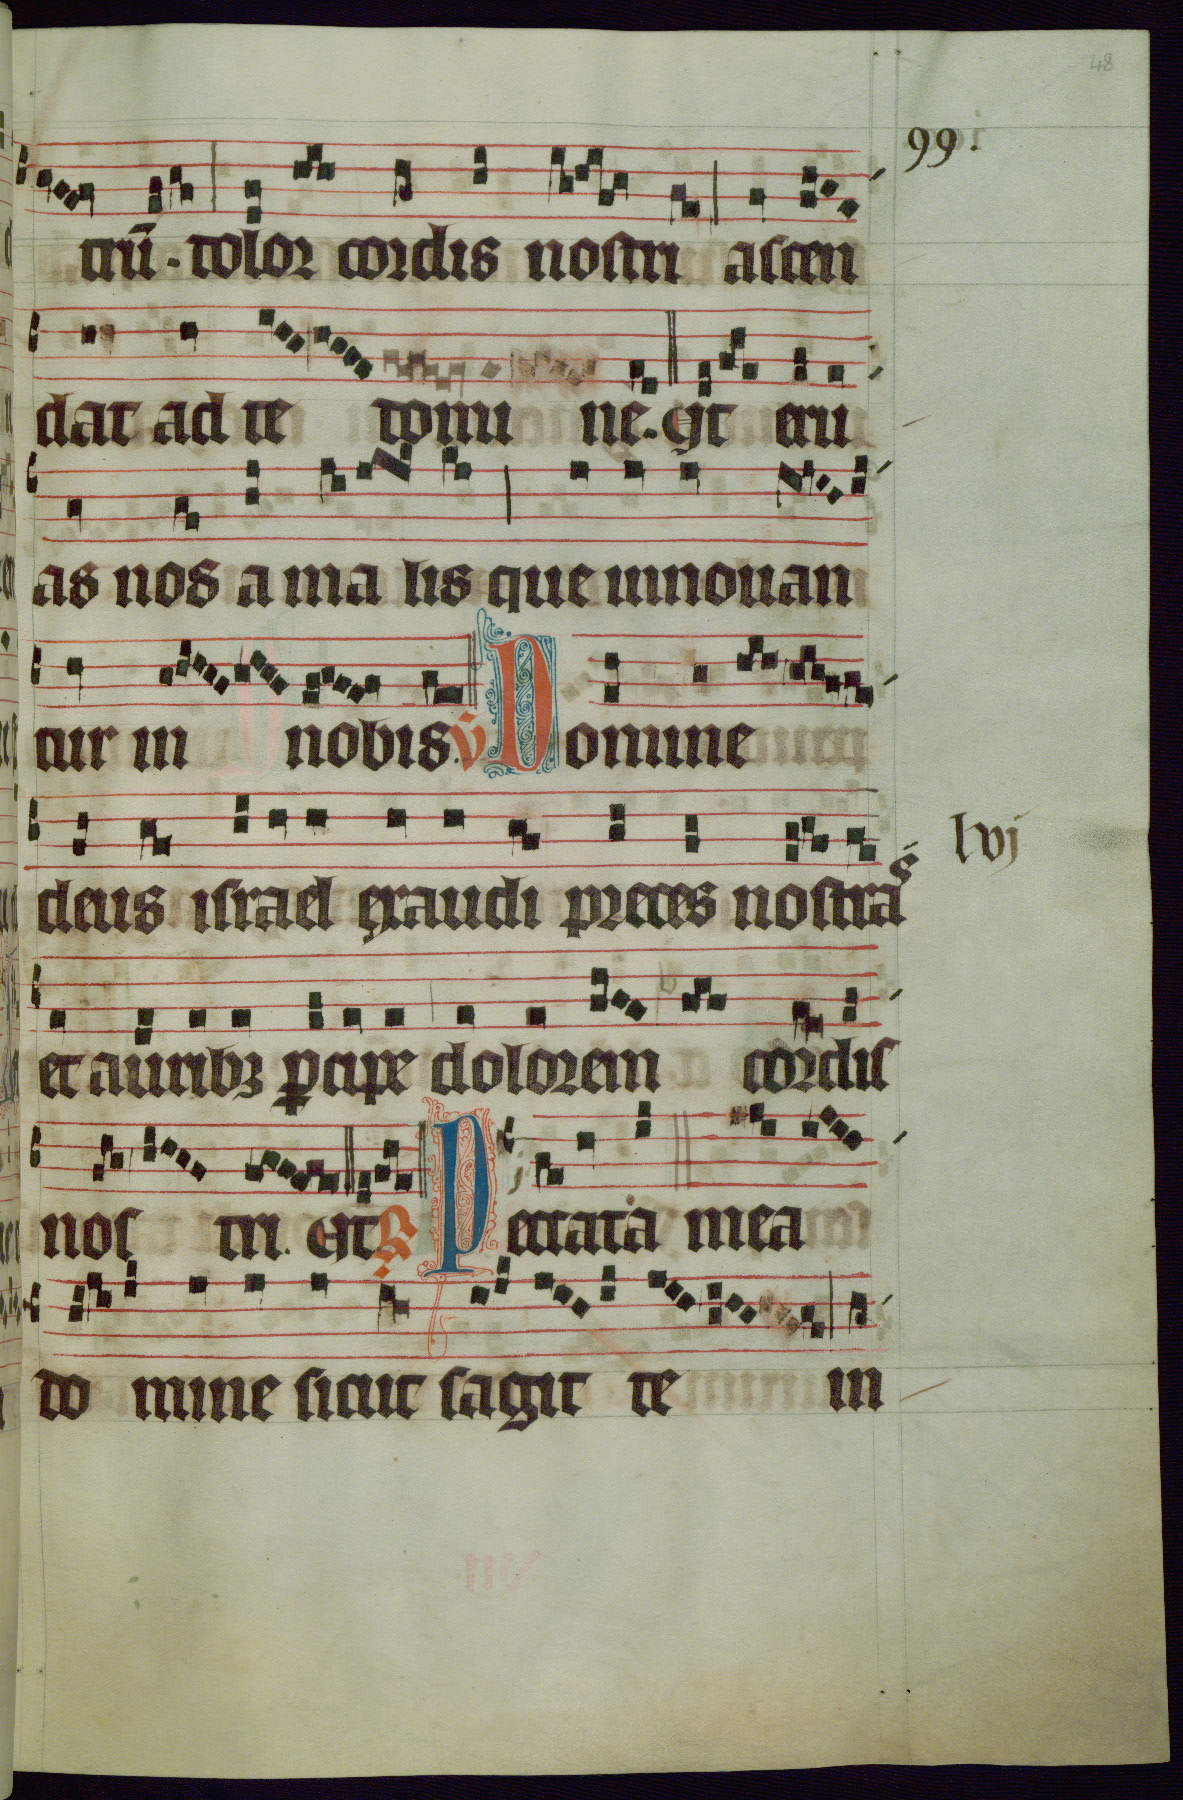 48
99.
trū. dolor cordis nostri ascen
dat ad te domi ne. Et eru
as nos a ma lis que innouan
tur in nobis. v̄ Domine
deus israel exaudi preces nostras
lvj
et auribꝫ ꝑcipe dolorem cordis
nos tri. Et R̄ Peccata mea
do mine sicut sagit te in